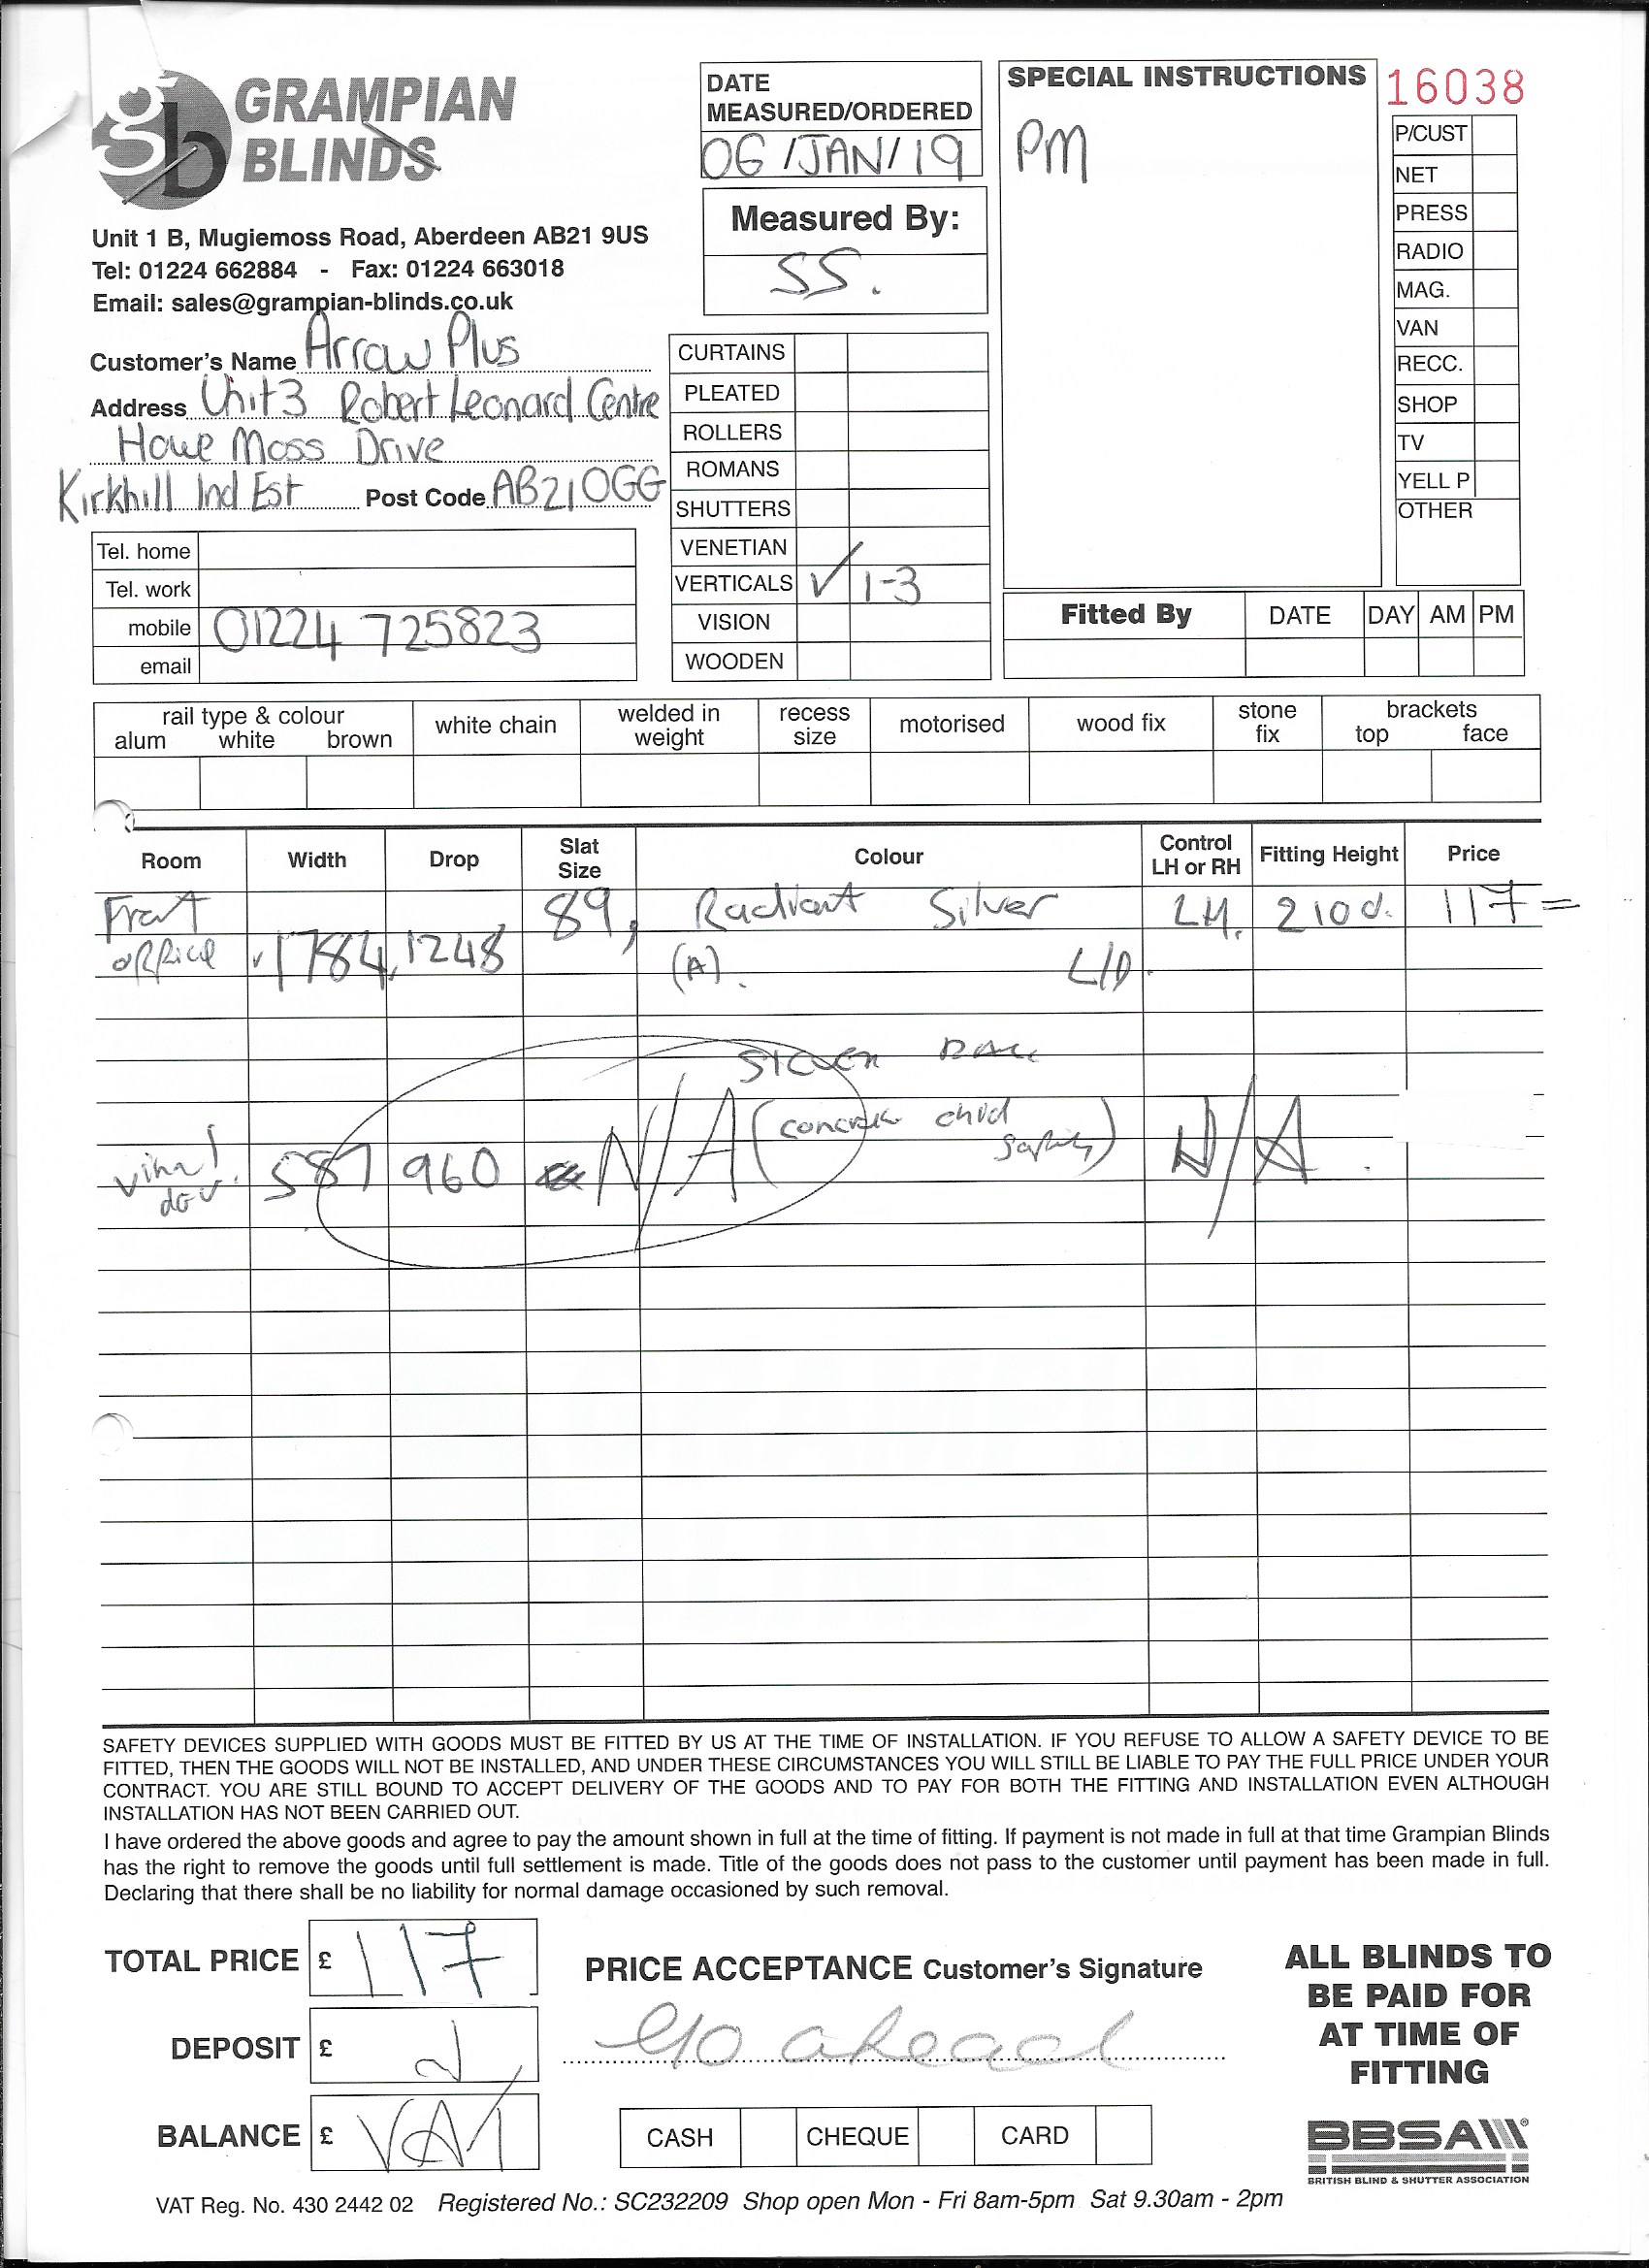 gb GRAMPIAN
BLINDS
Unit 1 B, Mugiemoss Road, Aberdeen AB21 9US
Tel: 01224 662884 - Fax: 01224 663018
Email: sales@grampian-blinds.co.uk
Customer's Name Arrow Plus
Address Unit 3 Robert Leonard Centre
Howe Moss Drive
Kirkhill Ind Est Post Code AB21 0GG
Tel. home
Tel. work
mobile 01224 725823
email
DATE
MEASURED/ORDERED
06/JAN/19
Measured By:
SS.
CURTAINS
PLEATED
ROLLERS
ROMANS
SHUTTERS
VENETIAN
VERTICALS ✓ 1-3
VISION
WOODEN
SPECIAL INSTRUCTIONS
PM
16038
P/CUST
NET
PRESS
RADIO
MAG.
VAN
RECC.
SHOP
TV
YELL P
OTHER
Fitted By DATE DAY AM PM
rail type & colour white chain welded in weight recess size motorised wood fix stone fix brackets
alum white brown top face
Room Width Drop Slat Size Colour Control LH or RH Fitting Height Price
Front 89, Radiant Silver LH. 210d. 117=
office 1784, 1248 (A). L/D.
SILVER RAIL
587 960 N/A (concrete child safety) N/A
SAFETY DEVICES SUPPLIED WITH GOODS MUST BE FITTED BY US AT THE TIME OF INSTALLATION. IF YOU REFUSE TO ALLOW A SAFETY DEVICE TO BE
FITTED, THEN THE GOODS WILL NOT BE INSTALLED, AND UNDER THESE CIRCUMSTANCES YOU WILL STILL BE LIABLE TO PAY THE FULL PRICE UNDER YOUR
CONTRACT. YOU ARE STILL BOUND TO ACCEPT DELIVERY OF THE GOODS AND TO PAY FOR BOTH THE FITTING AND INSTALLATION EVEN ALTHOUGH
INSTALLATION HAS NOT BEEN CARRIED OUT.
I have ordered the above goods and agree to pay the amount shown in full at the time of fitting. If payment is not made in full at that time Grampian Blinds
has the right to remove the goods until full settlement is made. Title of the goods does not pass to the customer until payment has been made in full.
Declaring that there shall be no liability for normal damage occasioned by such removal.
TOTAL PRICE £ 117
DEPOSIT £
BALANCE £ VAT
PRICE ACCEPTANCE Customer's Signature
Go ahead
CASH CHEQUE CARD
ALL BLINDS TO
BE PAID FOR
AT TIME OF
FITTING
BBSA
BRITISH BLIND & SHUTTER ASSOCIATION
VAT Reg. No. 430 2442 02 Registered No.: SC232209 Shop open Mon - Fri 8am-5pm Sat 9.30am - 2pm